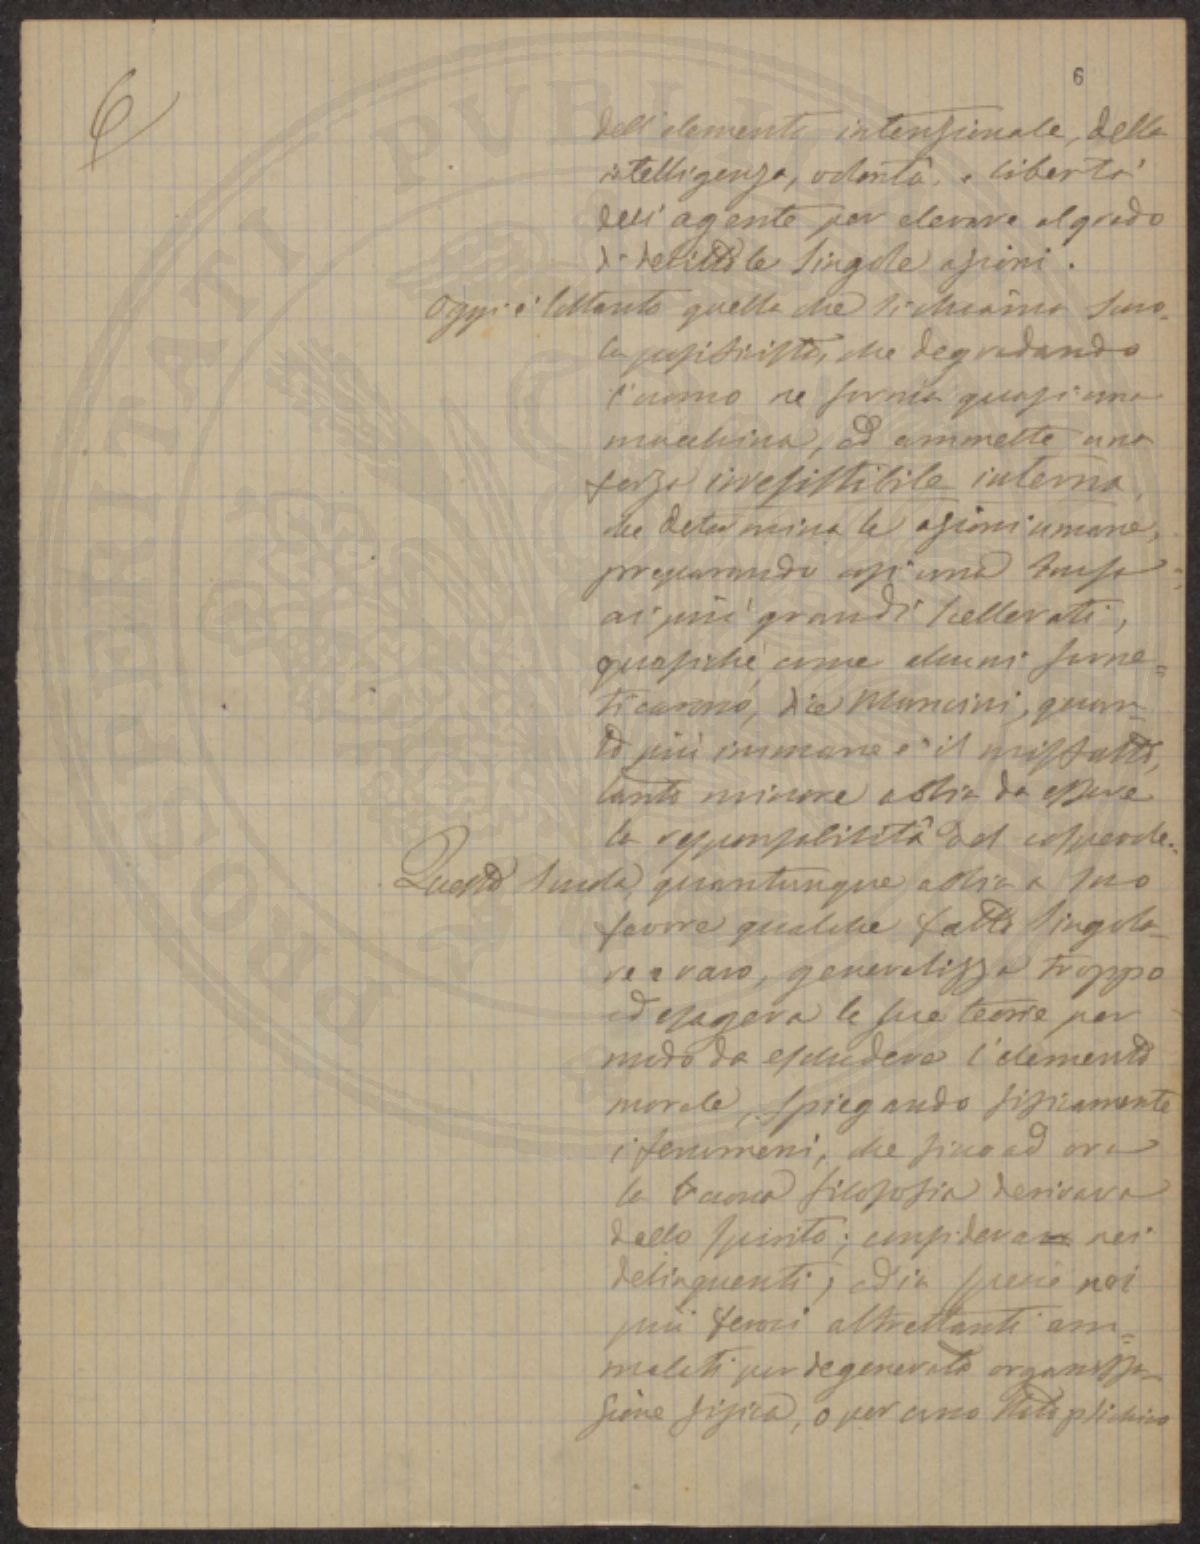 6
6
dell'elemento intenzionale, della
intelligenza, volontà, e libertà
dell'agente per elevare al grado
di delitto le singole azioni.
Oggi è soltanto quella che si chiama scuo-
la positivista, che degradando
l'uomo ne forma quasi una
macchina, ed ammette una
forza irresistibile interna,
che determina le azioni umane,
preparando così una scusa
ai più grandi scellerati,
quasiché, come alcuni farne=
ticarono, dice Mancini, quan-
to più immane è il misfatto,
tanto minore abbia da essere
la responsabilità del colpevole.
Questa scuola, quantunque abbia a suo
favore qualche fatto singola-
re e raro, generalizza troppo
ed esagera le sue teorie per
modo da escludere l'elemento
morale, spiegando fisicamente
i fenomeni, che fino ad ora
la buona filosofia derivava
dallo spirito; considera nei
delinquenti, ed in specie nei
più feroci altrettanti am=
malati per degenerata organizza-
zione fisica, o per uno stato psichico
PROSPERITATI PUBLI